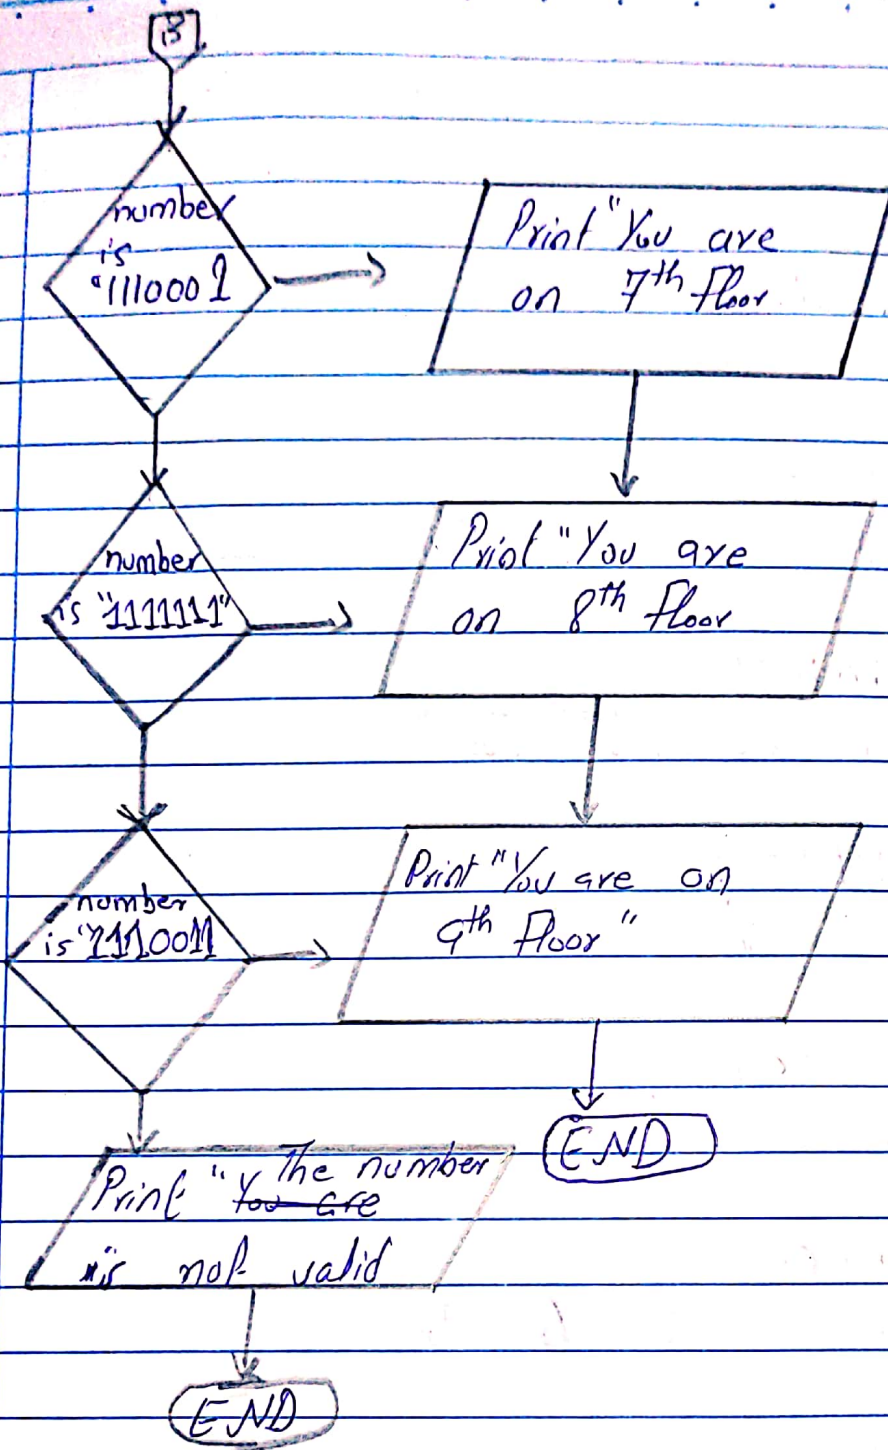 number
is
"1110001
Print "You are
on 7th floor
number
is "1111111"
Print "You are
on 8th floor
number
is "1110011
Print "You are on
9th floor"
END
Print "You are The number
is not valid
END